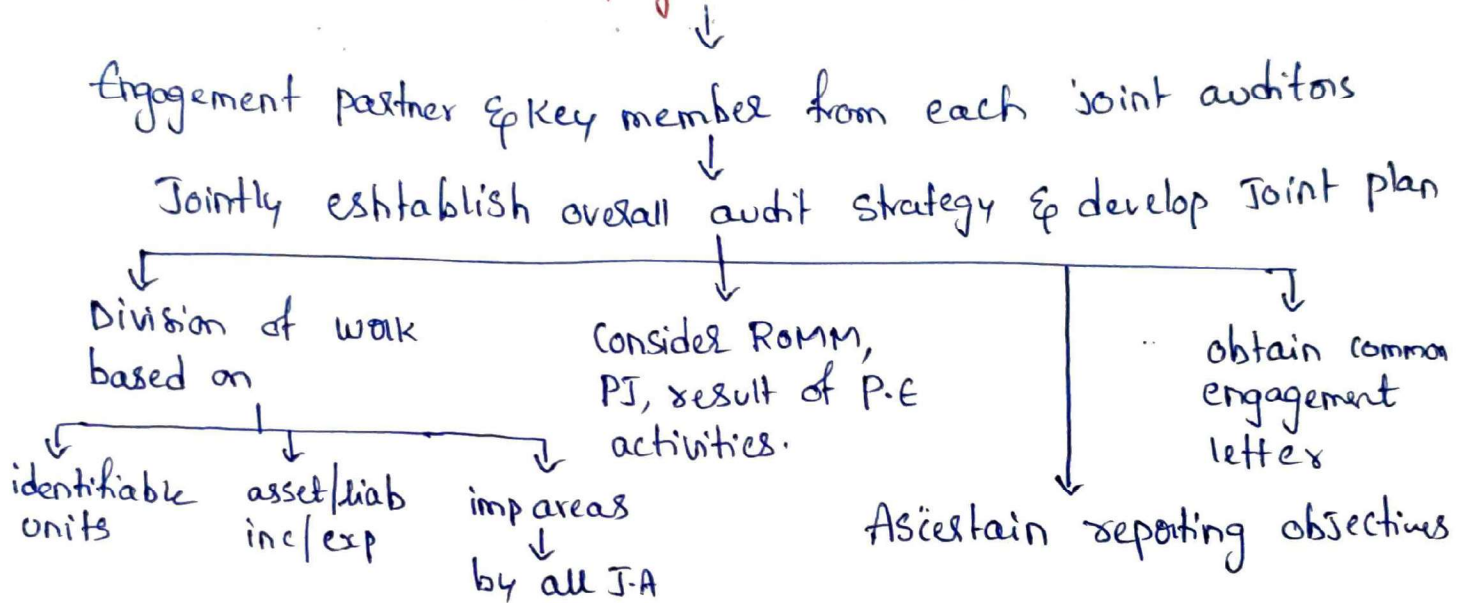 Engagement partner & Key member from each joint auditors
Jointly eshtablish overall audit strategy & develop Joint plan
Division of work
based on
identifiable
units
asset/liab
inc/exp
imp areas
by all J-A
Consider ROMM,
PJ, result of P.E
activities.
Ascertain reporting objectives
obtain common
engagement
letter